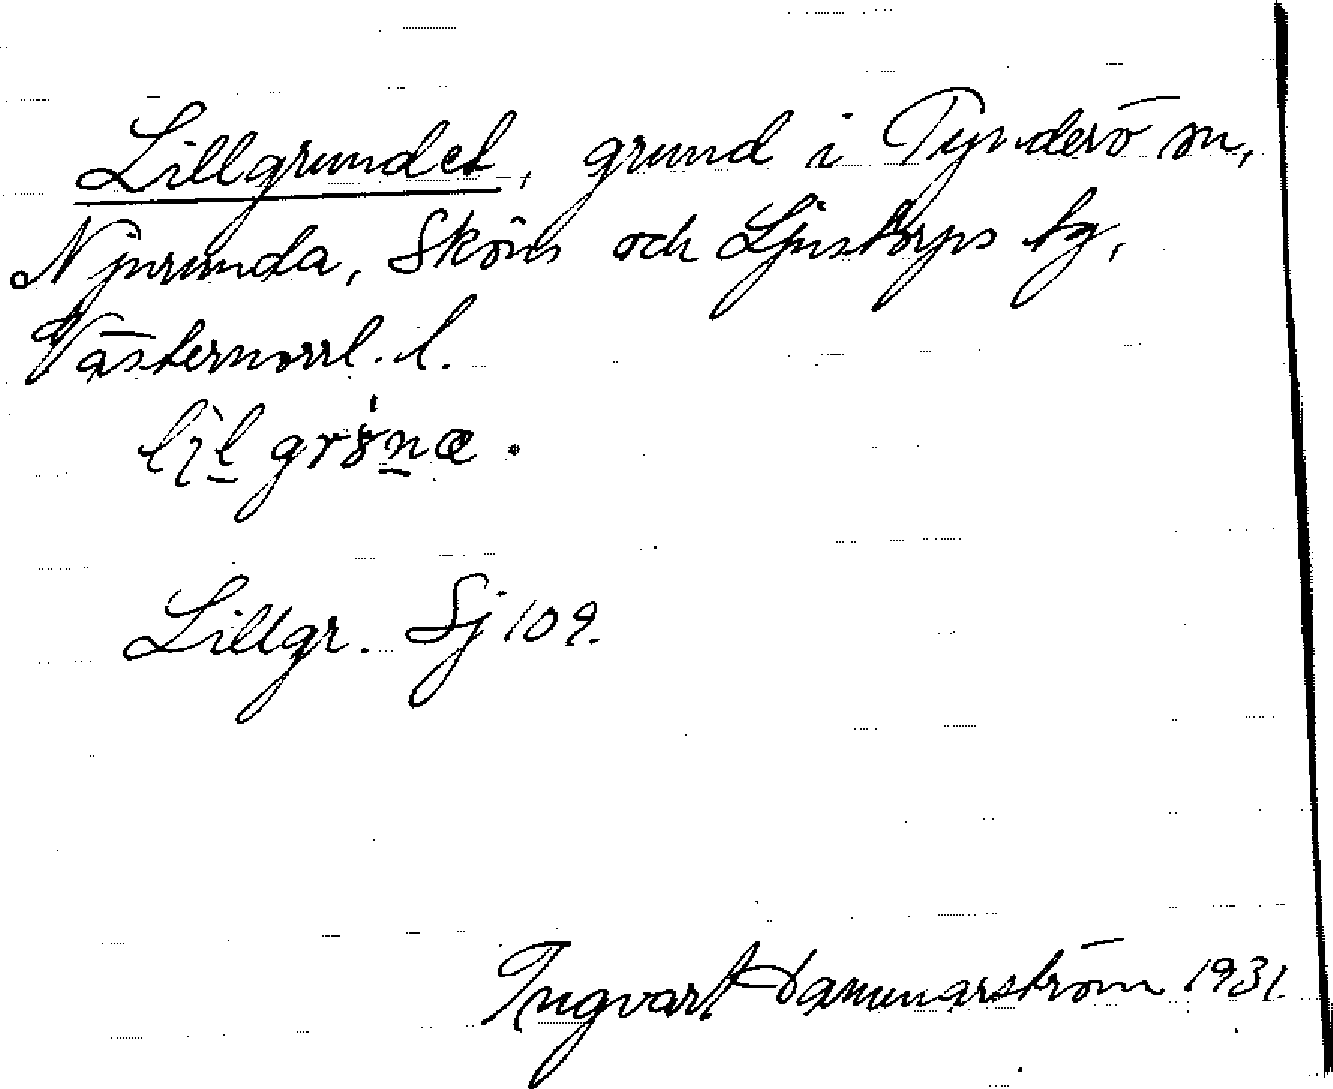 Lillgrundet, grund i Tynderö sn,
Njurunda, Sköns och Ljustorps tg,
Västernorrl. l.
Lillgr. Sj 109.
Ingvart Hammarström 1931.